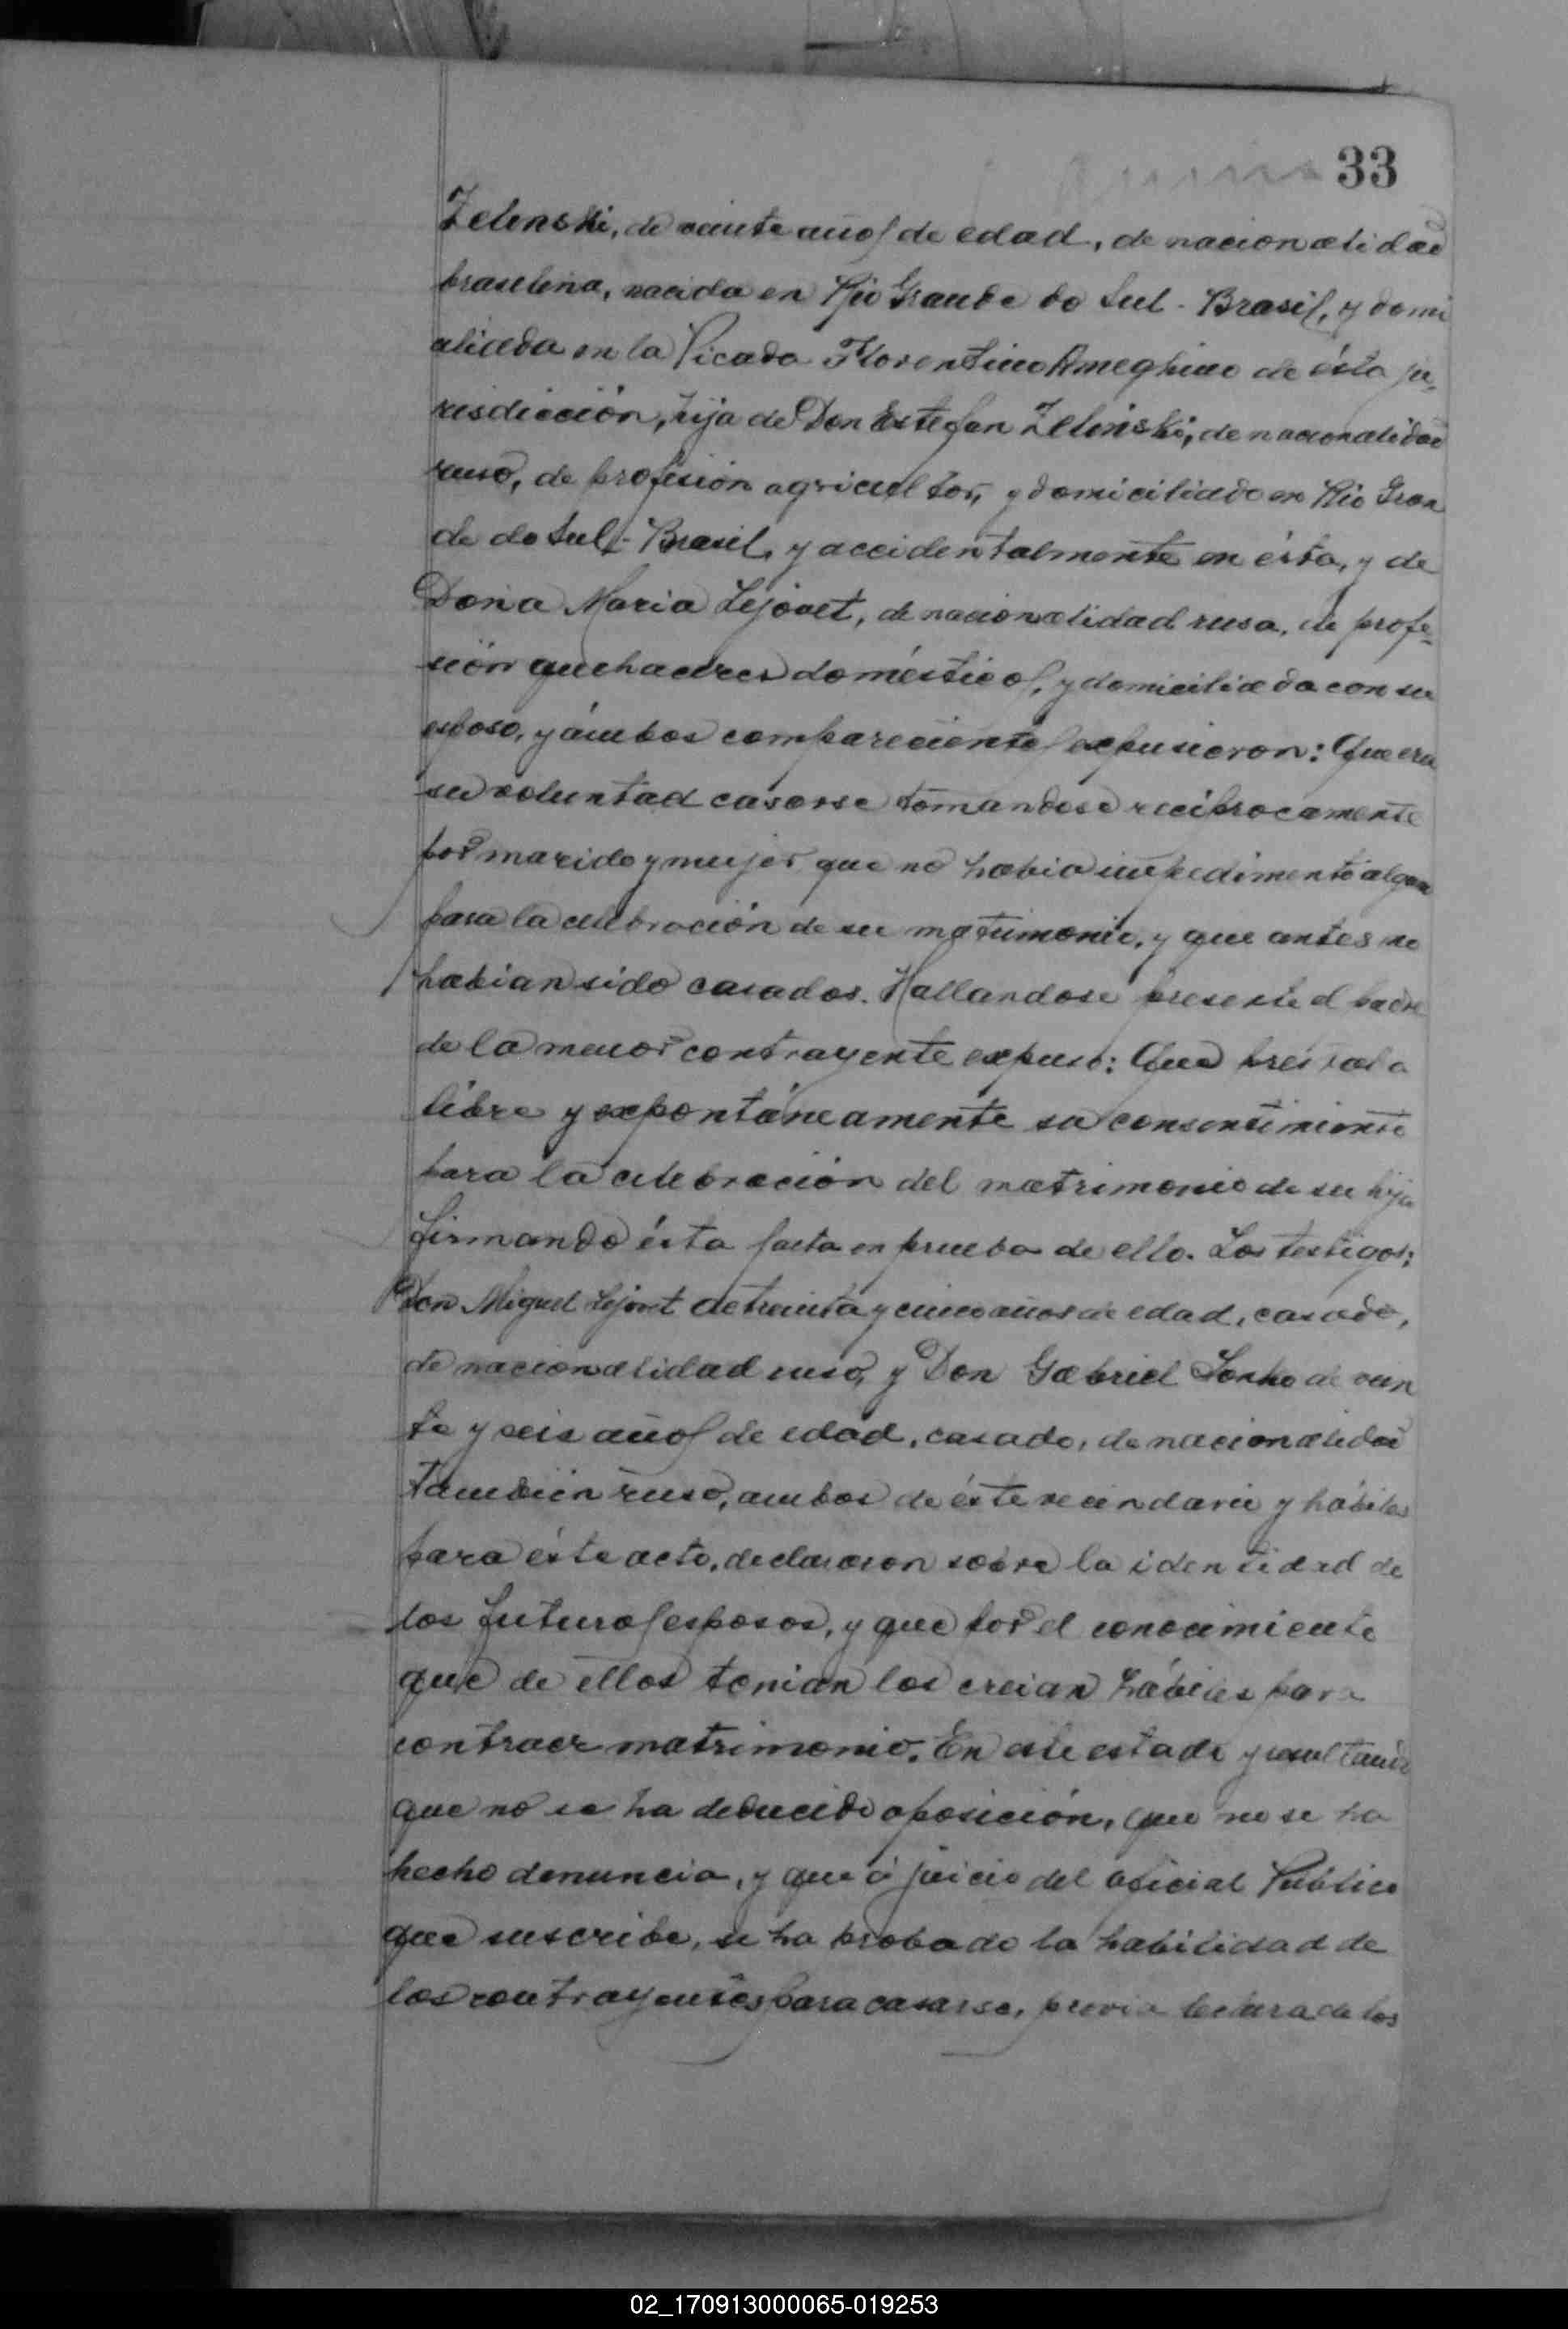 33
Zelenski, de veinte años de edad, de nacionalidad
brasileña, nacida en Rio Grande do Sul - Brasil, y domi
ciliada en la Picada Florentino Ameghino de ésta ju-
risdicción, hija de Don Estefan Zelinski, de nacionalidad
ruso, de profesión agricultor, y domiciliado en Rio Gran
de do Sul - Brasil, y accidentalmente en ésta, y de
Doña Maria Lejovet, de nacionalidad rusa, de profe-
sión quehaceres domésticos, y domiciliada con su
esposo, y ámbos comparecientes expusieron: Que era
su voluntad casarse tomandose recíprocamente
por marido y mujer que no habia impedimento algun
para la celebración de su matrimonio, y que antes no
habian sido casados. Hallandose presente el padre
de la menor contrayente expuso: Que prestaba
libre y expontáneamente su consentimiento
para la celebración del matrimonio de su hija
firmando ésta facta en prueba de ello. Los testigos:
Don Miguel Lejovet de treinta y cinco años de edad, casado,
de nacionalidad ruso, y Don Gabriel de vein
te y seis años de edad, casado, de nacionalidad
tambien ruso, ambos de éste vecindario y hábiles
para éste acto, declararon sobre la identidad de
los futuros esposos, y que por el conocimiento
que de ellos tenian los creian hábiles para
contraer matrimonio. En este estado y resultando
que no se ha deducido oposición, que no se ha
hecho denuncia, y que á juicio del oficial Público
que suscribe, se ha probado la habilidad de
los contrayentes para casarse, previa lectura de los
02_170913000065-019253